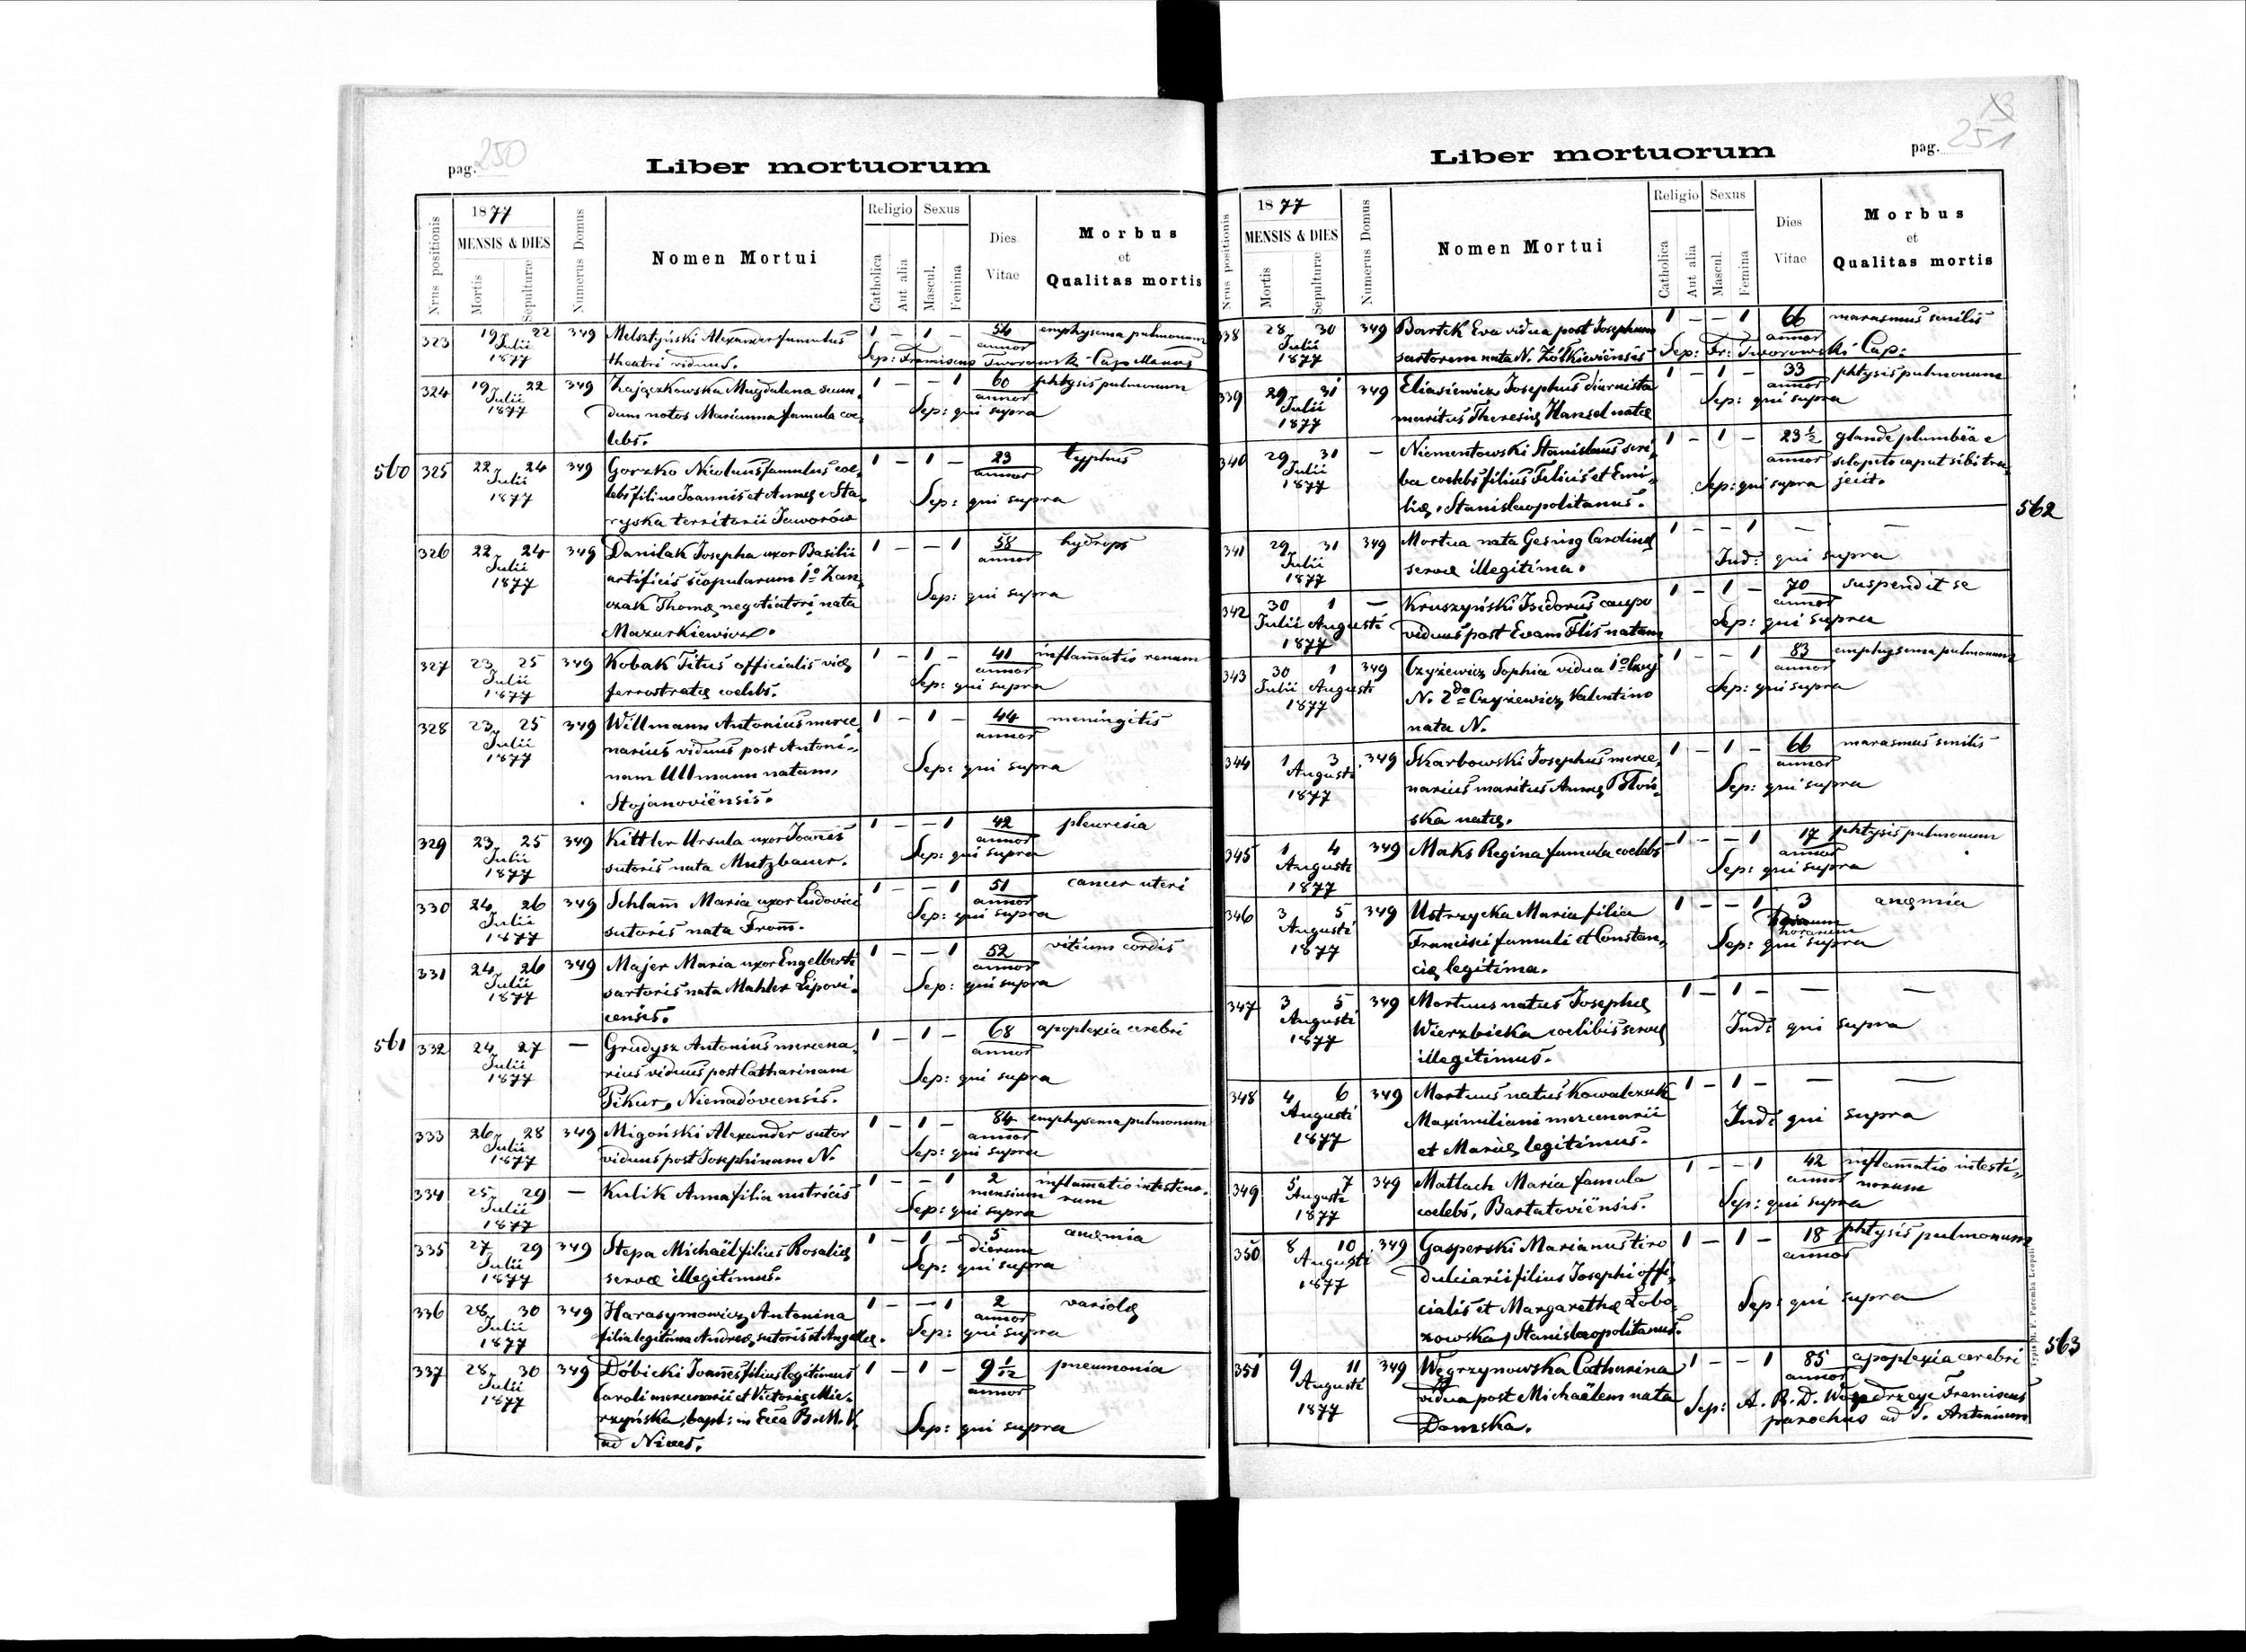 pag. 250
Liber mortuorum
Nrus positionis
1877
MENSIS & DIES
Mortis
Sepulturæ
Numerus Domus
Nomen Mortui
Religio
Catholica
Aut alia
Sexus
Mascul.
Femina
Dies
Vitae
Morbus
et
Qualitas mortis
323 19 22 349 Melsztyński Alexander famulus 1 – 1 – 54 emphysema pulmonum
Julii annor
1877 theatri viduus. Sep: Franciscus Tworowski Cap. Manus
324 19 22 349 Zajączkowska Magdalena secun, 1 – – 1 60 phtysis pulmonum
Julii annor
1877 dum notos Marianna famula coe, Sep: qui supra
lebs.
560 325 22 24 349 Gorzko Nicolaus famulus coe, 1 – 1 – 23 typhus
Julii lebs filius Joannis et Annę e Sta, annor
1877 Sep: qui supra
ryska territorii Jaworów
326 22 24 349 Danilak Josepha uxor Basilii 1 – – 1 58 hydrops
Julii artificis scopularum 1º Zan, annor
1877 czak Thomę negotiatori nata Sep: qui supra
Mazurkiewicz.
327 23 25 349 Kobak Titus officialis vię 1 – 1 – 41 inflam̄atio renum
Julii annor
1877 ferrostratę coelebs. Sep: qui supra
328 23 25 349 Willmann Antonius merce, 1 – 1 – 44 meningitis
Julii narius viduus post Antoni, annor
1877 nam Ullmann natam, Sep: qui supra
Stojanoviënsis.
329 23 25 349 Kittler Ursula uxor Joan̄is 1 – – 1 42 pleuresia
Julii annor
1877 sutoris nata Mutzbauer. Sep: qui supra
330 24 26 349 Schlam̄ Maria uxor Ludovici 1 – – 1 51 cancer uteri
Julii annor
1877 sutoris nata From̄. Sep: qui supra
331 24 26 349 Majer Maria uxor Engelberti 1 – – 1 52 vitium cordis
Julii annor
1877 sartoris nata Mahler Lipovi, Sep: qui supra
censis.
561 332 24 27 – Gradysz Antonius mercena, 1 – 1 – 68 apoplexia cerebri
Julii annor
1877 rius viduus post Catharinam Sep: qui supra
Pikur, Nienadóvcensis.
333 26 28 349 Migoński Alexander sutor 1 – 1 – 84 emphysema pulmonum
Julii annor
1877 viduus post Josephinam N. Sep: qui supra
334 25 29 – Kulik Anna filia nutricis 1 – – 1 2 inflam̄atio intestino,
Julii mensium rum
1877 Sep: qui supra
335 27 29 349 Stepa Michaël filius Rosalię 1 – 1 – 5 anęmia
Julii dierum
1877 servæ illegitimus. Sep: qui supra
336 28 30 349 Harasymowicz Antonina 1 – – 1 2 variolę
Julii annor
1877 filia legitima Andreę sutoris et Angelę. Sep: qui supra
337 28 30 349 Dóbicki Joan̄es filius legitimus 1 – 1 – 9 1/12 pneumonia
Julii Caroli mercenarii et Victorię Mie, annor
1877 rzyńska, bapt: in Eccła B.M.V. Sep: qui supra
ad Nives.
pag. 251
Liber mortuorum
Nrus positionis
1877
MENSIS & DIES
Mortis
Sepulturæ
Numerus Domus
Nomen Mortui
Religio
Catholica
Aut alia
Sexus
Mascul.
Femina
Dies
Vitae
Morbus
et
Qualitas mortis
338 28 30 349 Bartek Eva vidua post Josephum 1 – – 1 66 marasmus senilis
Julii annor
1877 sartorem nata N. Żółkieviënsis Sep: Fr: Tworowski Cap:
339 29 31 349 Eliasiewicz Josephus diurnista 1 – 1 – 33 phtysis pulmonum
Julii annor
1877 maritus Theresię Hansel natę Sep: qui supra
340 29 31 – Niementowski Stanislaus scri, 1 – 1 – 23 ½ glande plumbëa e
Julii ba coelebs filius Felicis et Emi, annor sclopeto caput sibi tra,
1877 Sep: qui supra jecit.
lię, Stanislaopolitanus.
562
341 29 31 349 Mortua nata Gesing Carolinę 1 – – 1 – –
Julii
1877 servæ illegitima. Ind: qui supra
342 30 1 – Kruszyński Isidorus caupo 1 – 1 – 70 suspendit se
Julii Augusti annor
1877 viduus post Evam Flis natam Sep: qui supra
343 30 1 349 Czyżewicz Sophia vidua 1º 1 – – 1 83 emphysema pulmonum
Julii Augusti annor
1877 N. 2do Czyżewicz Valentino Sep: qui supra
nata N.
344 1 3 349 Skarbowski Josephus merce, 1 – 1 – 66 marasmus senilis
Augusti annor
1877 narius maritus Annę Błoń, Sep: qui supra
ska natę.
345 1 4 349 Maks Regina famula coelebs 1 – – 1 17 phtysis pulmonum
Augusti annor
1877 Sep: qui supra
346 3 5 349 Ustrzycka Maria filia 1 – – 1 3 anęmia
Augusti Francisci famuli et Constan, horarum
1877 Sep: qui supra
cię legitima.
347 3 5 349 Mortuus natus Josephę 1 – 1 – – –
Augusti Wierzbicka coelibis servę Ind: qui supra
1877 illegitimus.
348 4 6 349 Mortuus natus Kowalczuk 1 – 1 – – –
Augusti Maximiliani mercenarii Ind: qui supra
1877 et Marię legitimus.
349 5 7 349 Matlach Maria famula 1 – – 1 42 inflam̄atio intesti,
Augusti annor norum
1877 coelebs, Bartatoviënsis. Sep: qui supra
350 8 10 349 Gasperski Marianus tiro 1 – 1 – 18 phtysis pulmonum
Augusti dulciarii filius Josephi offi, annor
1877 cialis et Margarethę Łobo, Sep: qui supra
zowska, Stanislaopolitanus.
563
351 9 11 349 Węgrzynowska Catharina 1 – – 1 85 apoplexia cerebri
Augusti annor
1877 vidua post Michaëlem nata Sep: A. R. D. Franciscus
Domska. parochus ad S. Antonium